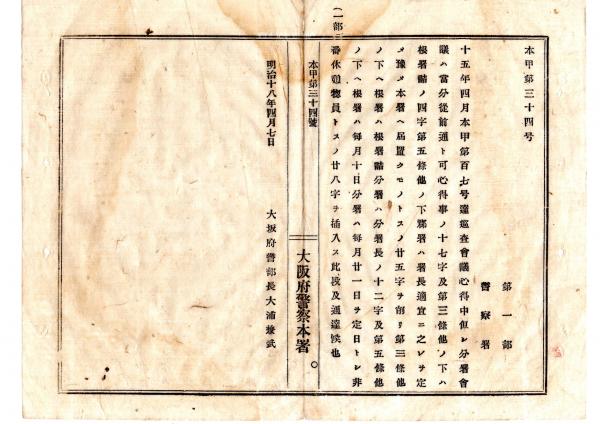 本甲第三十四号
第一部
警察署
十五年四月本甲第百七号達巡査會議心得中但シ分署會
議ハ當分従前通ト可心得事ノ十七字及第三條他ノ下ハ
根署詰ノ四字第五條他ノ下郷署ハ署長適宜ニ之レヲ定
メ豫メ本署ヘ屆置クモノトスノ廿五字ヲ削リ第三條他
ノ下ヘ根署ハ根署詰分署ハ分署長ノ十二字及第五條他
ノ下ヘ根署ハ毎月十日分署ハ毎月廿一日ヲ定日トシ非
番休憩物員トスノ廿八字ヲ插入ス此段及通達候也
本甲第三十四號
大阪府警察本署
明治十八年四月七日
大坂府警部長大浦兼武